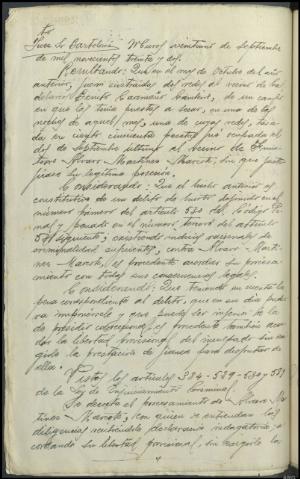 Juez Sr Cartelle Muros veintiuno de Septiembre
de mil novecientos treinta y dos.
Resultando: Que en el mes de Octubre del año
anterior, fueron sustraidas del
Benito Caamaño de un
en que las tenia puestas a secar, en una de las
noches de aquel mes, una de cuyas redes, tasa-
da en ciento cincuenta pesetas fué ocupada el
dos de Septiembre ultimo al vecino de
Alvaro Martinez Maroto, sin que justi-
ficase su legitima posesion.
Considerando: Que el hecho anterior es
constitutivo de un delito de hurto definido en el
número primero del articulo 530 del Codigo Pe-
nal y penado en el número tercero del articulo
531 siguiente, existiendo indicios racionales de
criminalidad suficientes contra Alvaro Marti-
nez Maroto, es procedente acordar su procesa-
miento con todas sus consecuencias legales.
Considerando: Que teniendo en cuenta la
pena correspondiente al delito, que en su dia pu-
diera imponersele y que puede ser inferior a la
de presidio correccional, es procedente tambien acor-
dar la libertad provisional del inculpado sin exi-
girle la prestacion de fianza para disfrutar de
ella.
Vistos los articulos 384 - 529 - 530 y 589
de la Ley de Enjuiciamiento Criminal.
Se decreta el procesamiento de Alvaro Mar-
tinez Maroto, con quien se entiendan las
diligencias recibiendole declaracion indagatoria, a-
cordando su libertad provisional, sin exigirle la